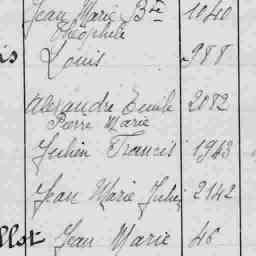 Jean Marie Bte 1040
Théophile
is Louis 988
Alexandre Emile 2082
Pierre Marie
Julien Francis 1943
Jean Marie Julien 2142
llot Jean Marie 46